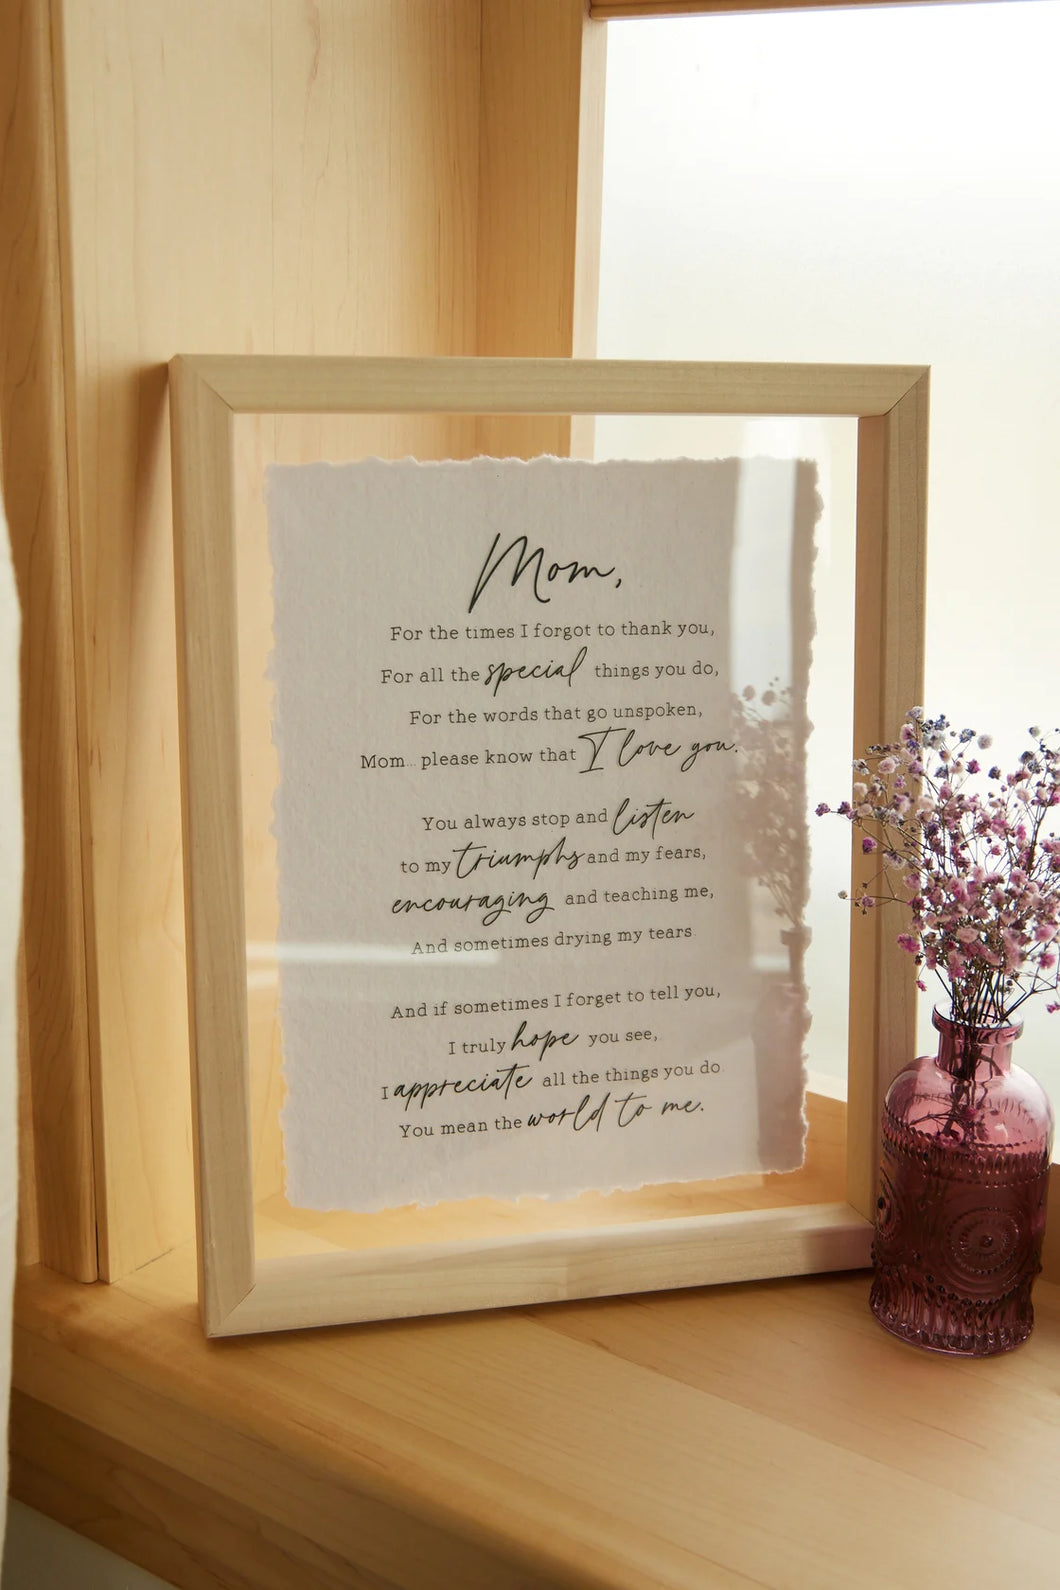 Mom,
For the times I forgot to thank you,
For all the special things you do,
For the words that go unspoken,
Mom... please know that I love you.
You always stop and listen
to my triumphs and my fears,
encouraging and teaching me,
And sometimes drying my tears.
And if sometimes I forget to tell you,
I truly hope you see,
I appreciate all the things you do.
You mean the world to me.